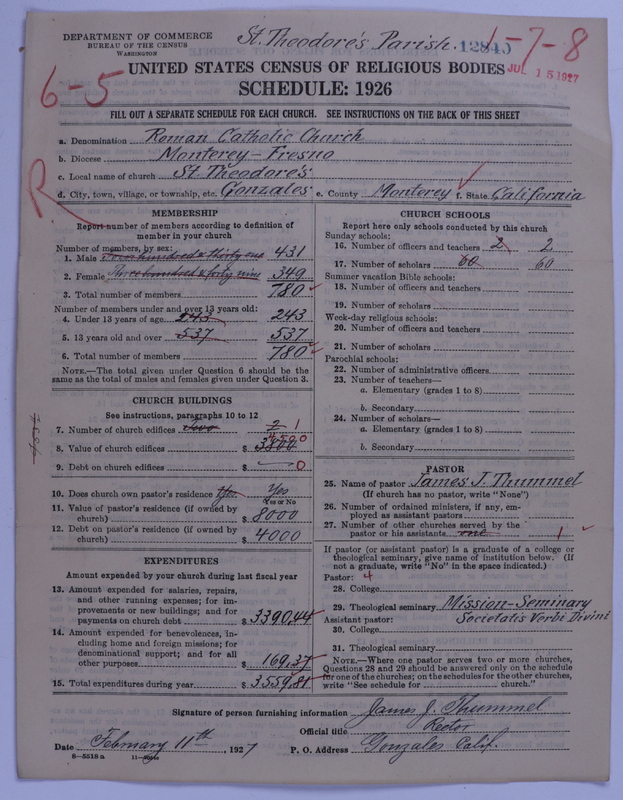 DEPARTMENT OF COMMERCE
BUREAU OF THE CENSUS
WASHINGTON
St. Theodore's Parish
1-7-8
JUL 15 1927
6-5
UNITED STATES CENSUS OF RELIGIOUS BODIES
SCHEDULE: 1926
FILL OUT A SEPARATE SCHEDULE FOR EACH CHURCH. SEE INSTRUCTIONS ON THE BACK OF THIS SHEET
a. Denomination Roman Catholic Church
b. Diocese Monterey-Fresno
c. Local name of church St. Theodore's
d. City, town, village, or township, etc. Gonzales e. County Monterey f. State California
R
MEMBERSHIP
Report number of members according to definition of
member in your church
Number of members, by sex:
1. Male Four hundred & thirty one 431
2. Female Three hundred & forty nine 349
3. Total number of members 780
Number of members under and over 13 years old:
4. Under 13 years of age 243 243
5. 13 years old and over 537 537
6. Total number of members 780
NOTE.—The total given under Question 6 should be the
same as the total of males and females given under Question 3.
CHURCH BUILDINGS
See instructions, paragraphs 10 to 12
7. Number of church edifices Two 2 1
8. Value of church edifices $
9. Debt on church edifices $ 0
10. Does church own pastor's residence Yes Yes
Yes or No
11. Value of pastor's residence (if owned by
church) $ 8000
12. Debt on pastor's residence (if owned by
church) $ 4000
EXPENDITURES
Amount expended by your church during last fiscal year
13. Amount expended for salaries, repairs,
and other running expenses; for im-
provements or new buildings; and for
payments on church debt $ 3390,44
14. Amount expended for benevolences, in-
cluding home and foreign missions; for
denominational support; and for all
other purposes $ 169,37
15. Total expenditures during year $ 3559,81
CHURCH SCHOOLS
Report here only schools conducted by this church
Sunday schools:
16. Number of officers and teachers 2 2
17. Number of scholars 60 60
Summer vacation Bible schools:
18. Number of officers and teachers
19. Number of scholars
Week-day religious schools:
20. Number of officers and teachers
21. Number of scholars
Parochial schools:
22. Number of administrative officers
23. Number of teachers—
a. Elementary (grades 1 to 8)
b. Secondary
24. Number of scholars—
a. Elementary (grades 1 to 8)
b. Secondary
PASTOR
25. Name of pastor James J. Thummel
(If church has no pastor, write "None")
26. Number of ordained ministers, if any, em-
ployed as assistant pastors
27. Number of other churches served by the
pastor or his assistants one 1
If pastor (or assistant pastor) is a graduate of a college or
theological seminary, give name of institution below. (If
not a graduate, write "No" in the space indicated.)
Pastor: 4
28. College
29. Theological seminary Mission-Seminary
Assistant pastor: Societatis Verbi Divini
30. College
31. Theological seminary
NOTE.—Where one pastor serves two or more churches,
Questions 28 and 29 should be answered only on the schedule
for one of the churches; on the schedules for the other churches,
write "See schedule for church."
Signature of person furnishing information James J. Thummel
Official title Rector
Date February 11th 1927 P. O. Address Gonzales Calif.
8—5518 a